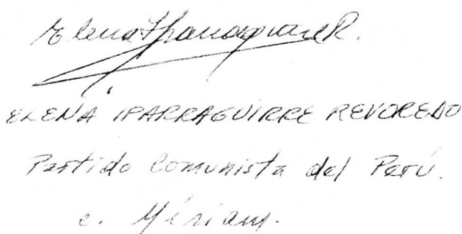 Elena Iparraguirre R.
ELENA IPARRAGUIRRE REVOREDO
Partido Comunista del Perú.
c. Míriam.